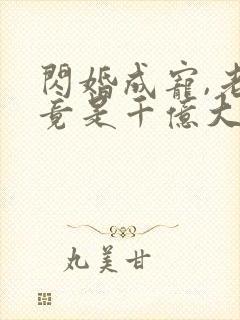 閃婚成寵,老
竟是千億大
丸美甘